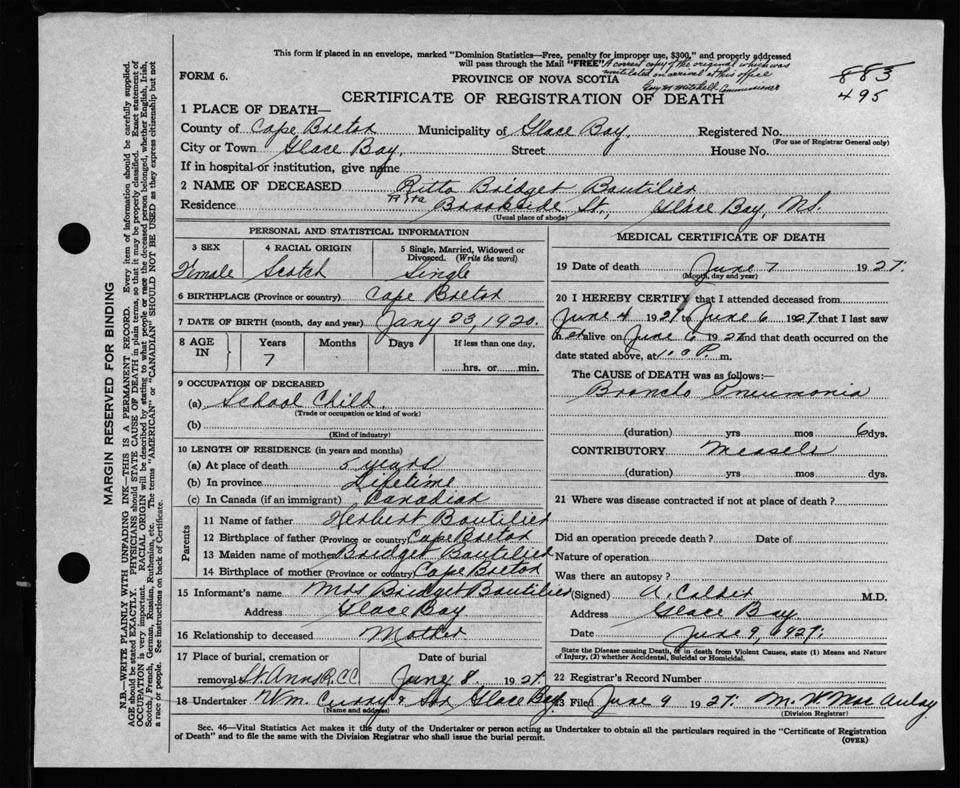 This form if placed in an envelope, marked "Dominion Statistics—Free, penalty for improper use, $300," and properly addressed
will pass through the Mail "FREE" A correct copy of the original which was
mutilated on arrival at this office
FORM 6. PROVINCE OF NOVA SCOTIA
Commissioner
883
495
CERTIFICATE OF REGISTRATION OF DEATH
1 PLACE OF DEATH—
County of Cape Breton Municipality of Glace Bay, Registered No.
(For use of Registrar General only)
City or Town Glace Bay, Street House No.
If in hospital or institution, give name
2 NAME OF DECEASED Ritta Bridget Boutilier
Rita
Residence Brookside St., Glace Bay, N.S.
(Usual place of abode)
PERSONAL AND STATISTICAL INFORMATION
3 SEX 4 RACIAL ORIGIN 5 Single, Married, Widowed or
Divorced. (Write the word)
Female Scotch Single
6 BIRTHPLACE (Province or country) Cape Breton
7 DATE OF BIRTH (month, day and year) Jany 23, 1920.
8 AGE IN Years Months Days If less than one day,
7 hrs. or min.
9 OCCUPATION OF DECEASED
(a) School Child
(Trade or occupation or kind of work)
(b)
(Kind of industry)
10 LENGTH OF RESIDENCE (in years and months)
(a) At place of death 5 years
(b) In province Lifetime
(c) In Canada (if an immigrant) Canadian
Parents
11 Name of father Herbert Boutilier
12 Birthplace of father (Province or country) Cape Breton
13 Maiden name of mother Bridget Boutilier
14 Birthplace of mother (Province or country) Cape Breton
15 Informant's name Mrs Bridget Boutilier
Address Glace Bay
16 Relationship to deceased Mother
17 Place of burial, cremation or Date of burial
removal St. Anns R.C.C. June 8. 1927.
18 Undertaker Wm. Curry & Son Glace Bay
(Name and address)
MEDICAL CERTIFICATE OF DEATH
19 Date of death June 7 1927.
(Month, day and year)
20 I HEREBY CERTIFY that I attended deceased from
June 4 1927 to June 6 1927 that I last saw
h er alive on June 6 1927 and that death occurred on the
date stated above, at P. m.
The CAUSE of DEATH was as follows:—
Broncho Pneumonia
(duration) yrs mos 6 dys.
CONTRIBUTORY Measels
(duration) yrs mos dys.
21 Where was disease contracted if not at place of death?
Did an operation precede death? Date of
Nature of operation
Was there an autopsy?
(Signed) A. Calder M.D.
Address Glace Bay
Date June 9, 1927.
State the Disease causing Death, or in death from Violent Causes, state (1) Means and Nature
of Injury, (2) whether Accidental, Suicidal or Homicidal.
22 Registrar's Record Number
23 Filed June 9 1927. M. W MacAulay
(Division Registrar)
Sec. 46—Vital Statistics Act makes it the duty of the Undertaker or person acting as Undertaker to obtain all the particulars required in the "Certificate of Registration
of Death" and to file the same with the Division Registrar who shall issue the burial permit.
(OVER)
MARGIN RESERVED FOR BINDING
N.B.—WRITE PLAINLY WITH UNFADING INK—THIS IS A PERMANENT RECORD. Every item of information should be carefully supplied.
AGE should be stated EXACTLY. PHYSICIANS should STATE CAUSE OF DEATH in plain terms, so that it may be properly classified. Exact statement of
OCCUPATION is very important. RACIAL ORIGIN will be described by stating to what people or race the deceased person belonged, whether English, Irish,
Scotch, French, German, Russian, Ruthenian, etc. The terms "AMERICAN" or "CANADIAN" SHOULD NOT BE USED as they express citizenship but not
a race or people. See instructions on back of Certificate.